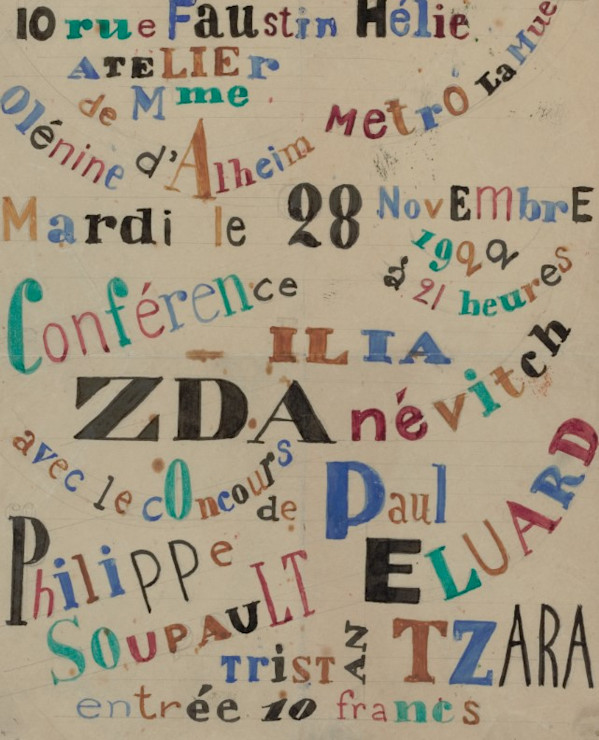 10 rue Faustin Hélie
ATELIER
de Mme
Métro La Muette
Olénine d'Alheim
Mardi le 28 NovEmbrE
1922
à 21 heures
Conférence
- ILIA
ZDAnévitch
avec le cOncours
de Paul
ELUARD
Philippe
SOUPAULT
TrisTAN TZARA
entrée 10 francs